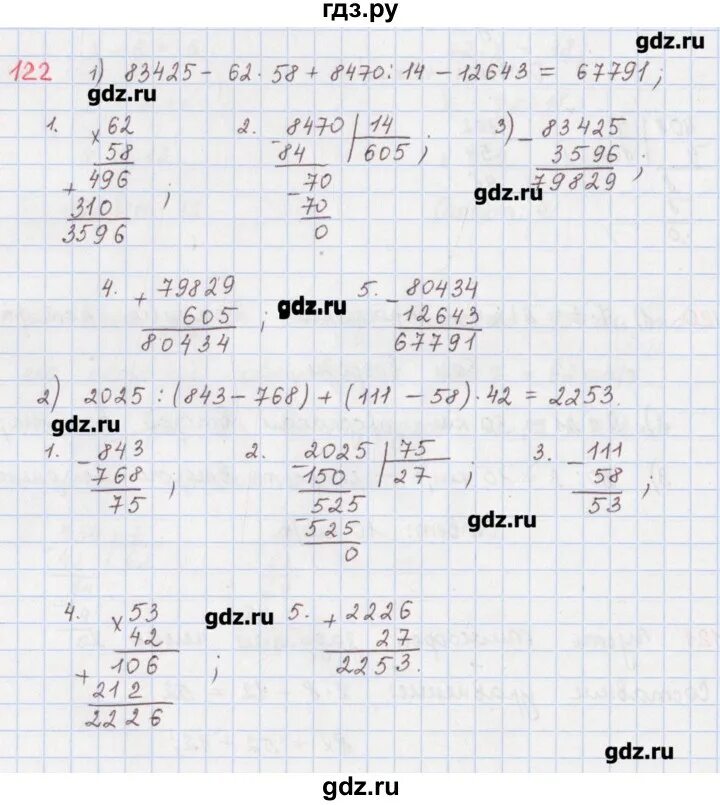 гдз.ру
gdz.ru
122 1) 83425 - 62 · 58 + 8470 : 14 - 12643 = 67791;
gdz.ru
1. × 62
58
+ 496
310
3596 ;
2. - 8470 | 14
84 605 ;
- 70
70
0
3) - 83425
3596
gdz.ru
79829 ;
4. + 79829
605
80434 ;
gdz.ru
5. - 80434
12643
67791
2) 2025 : (843 - 768) + (111 - 58) · 42 = 2253.
gdz.ru
1. - 843
768
75 ;
2. - 2025 | 75
150 27 ;
- 525
525
0
3. - 111
58
53 ;
gdz.ru
4. × 53
42
+ 106
212
2226 ;
gdz.ru
5. + 2226
27
2253.
gdz.ru
gdz.ru